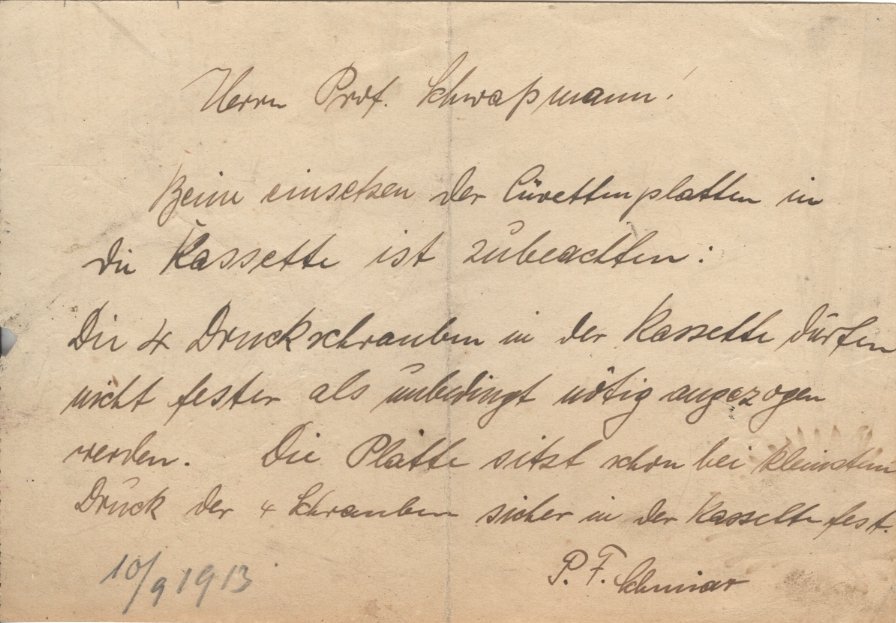 Herrn Prof. Schwaßmann!
Beim einsetzen der Cüvettenplatten in
die Kassette ist zubeachten:
Die 4 Druckschrauben in der Kassette dürfen
nicht fester als unbedingt nötig angezogen
werden. Die Platte sitzt schon bei kleinstem
Druck der 4 Schrauben sicher in der Kassette fest.
P. F.
10/9 1913